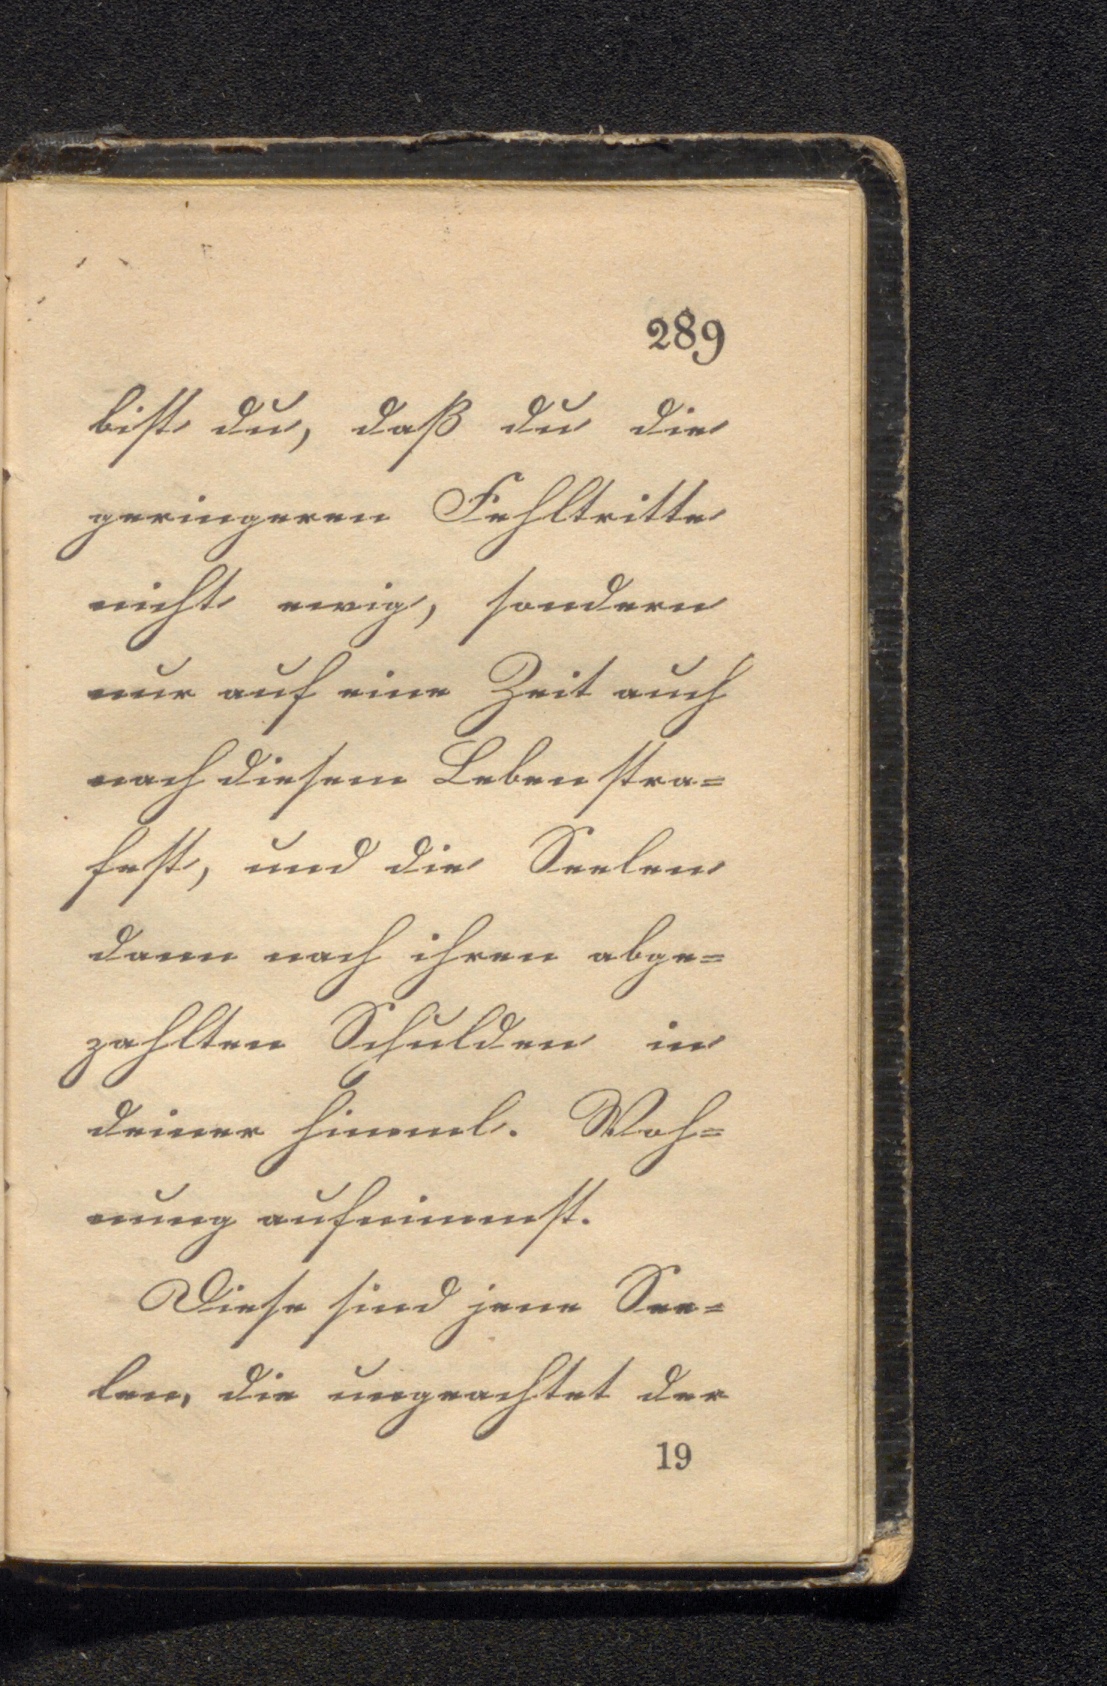 289
bist du, daß du die
geringeren Fehltritte
nicht ewig, sondern
nur auf eine Zeit auch
nach diesem Leben stra=
fest, und die Seelen
dann nach ihren abge=
zahlten Schulden in
deiner himml. Woh=
nung aufnimmst.
Diese sind jene See=
len, die ungeachtet der
19